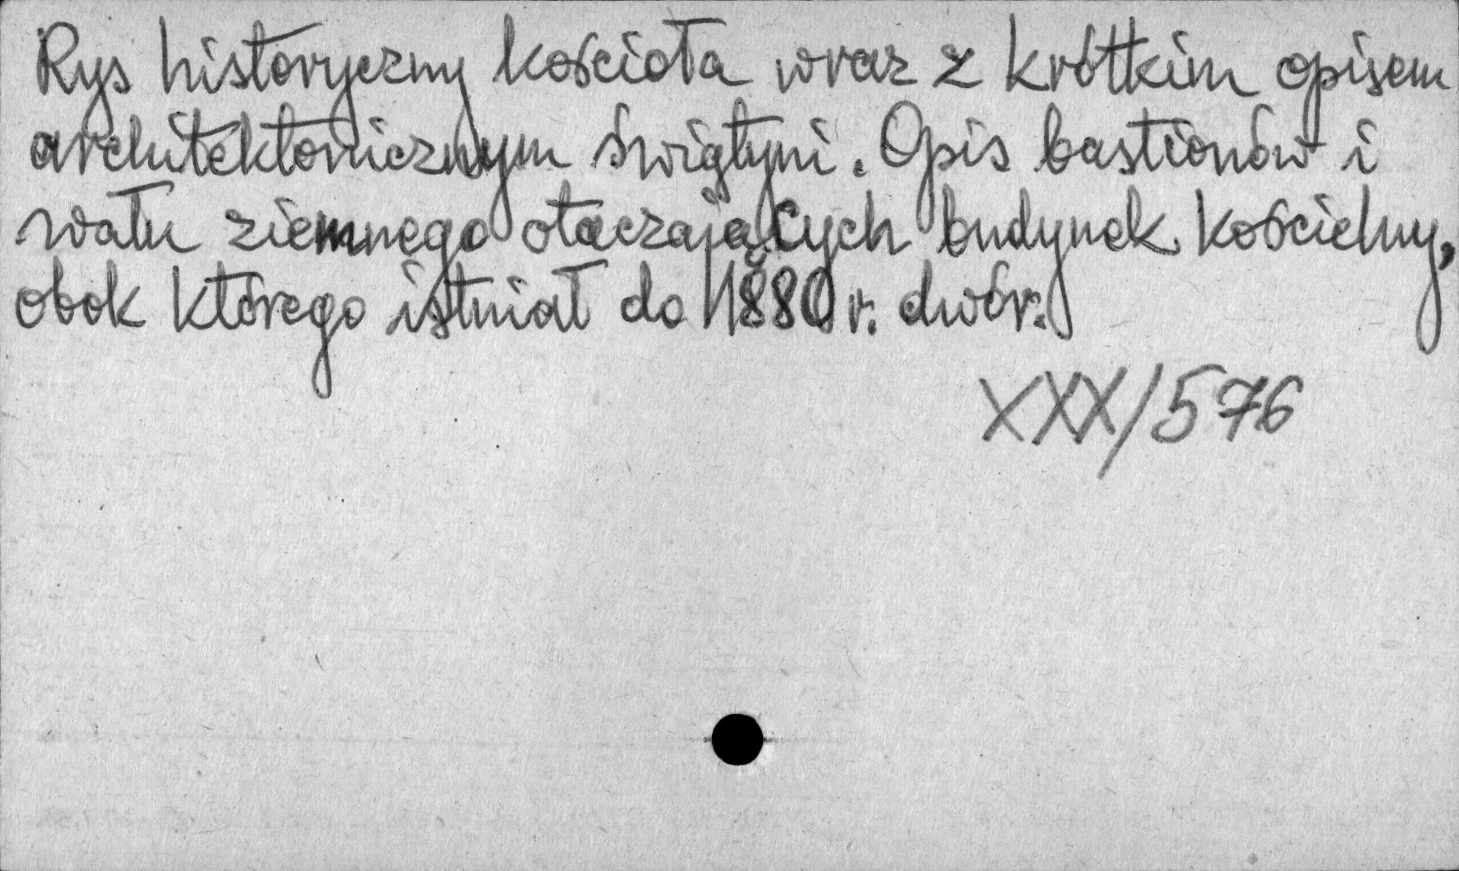 Rys historyczny kościoła wraz z krótkim opisem
architektonicznym świątyni. Opis bastionów i
wału ziemnego otaczających budynek kościelny,
obok którego istniał do 1880 r. dwór.
XXX/576